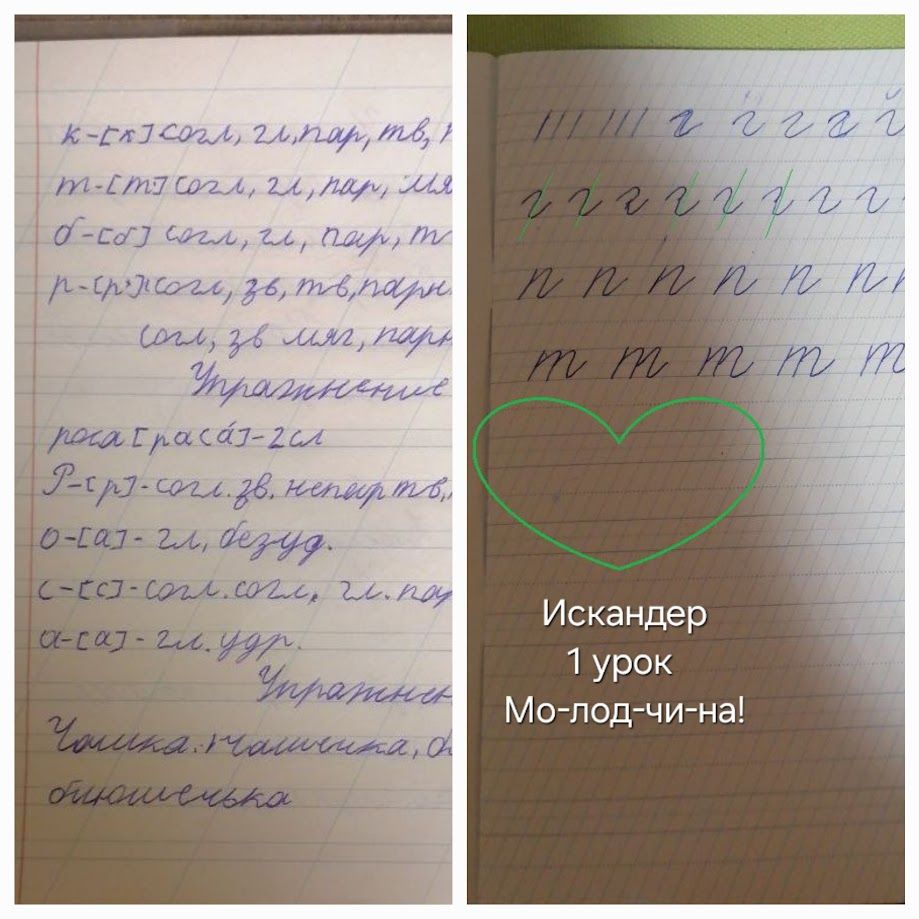 к-[к] согл, гл, пар, тв,
т-[т] согл, гл, пар, мя
б-[б] согл, гл, пар, т
р-[р'] согл, зв, тв, парн
согл, зв мяг, парн
Упражнение
роса [раса́]-2сл
Р-[р]-согл. зв. непар тв.,
о-[а]- гл, безуд.
с-[с]-согл. согл, гл. пар
а-[а]- гл. удр.
Упражнен
Чашка:
ııı ııı г г г г г
г г г г г г г г
п п п п п п
т т т т т
Искандер
1 урок
Мо-лод-чи-на!